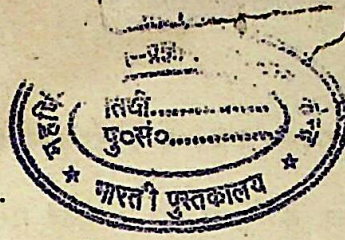 महर्षि
तिथी..............
पु०सं०..............
★ भारती पुस्तकालय ★